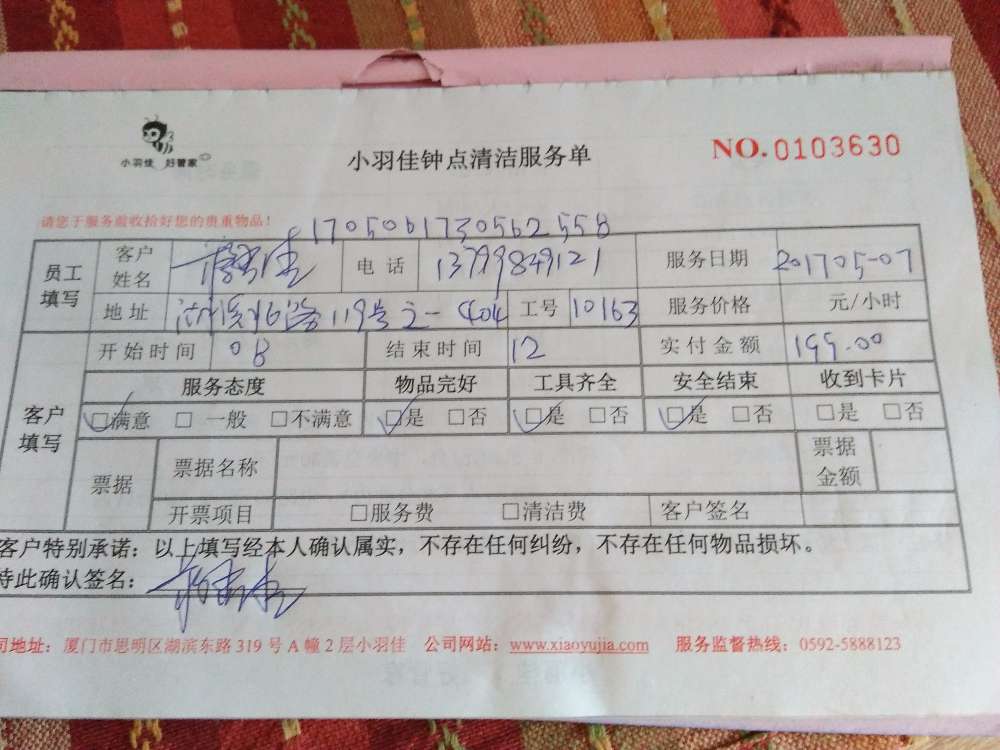 小羽佳 好管家
小羽佳钟点清洁服务单 NO.0103630
请您于服务前收拾好您的贵重物品！ 170506173056255​8
员工填写 客户姓名 电话 13799849121 服务日期 201705-07
地址 119号之一 404 工号 10163 服务价格 元/小时
开始时间 08 结束时间 12 实付金额 199.00
客户填写 服务态度 物品完好 工具齐全 安全结束 收到卡片
□满意 □一般 □不满意 □是 □否 □是 □否 □是 □否 □是 □否
票据 票据名称 票据金额
开票项目 □服务费 □清洁费 客户签名
客户特别承诺：以上填写经本人确认属实，不存在任何纠纷，不存在任何物品损坏。
特此确认签名：
司地址：厦门市思明区湖滨东路 319 号 A 幢 2 层小羽佳 公司网站：www.xiaoyujia.com 服务监督热线：0592-5888123